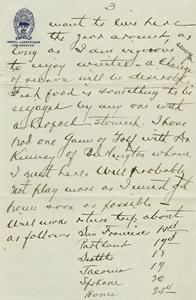 3
HOTEL LANKERSHIM
LOS ANGELES
want to live here
the year around as
long as I am vigorous enough
to enjoy winter. a change
of season will be desirable
Fish food is something to be
enjoyed by any one with
a stomach. I have
not one game of Golf with
Kinney of whom
I must here. Will probably
not play more as I need
home soon as possible –
Will make return trip about
as follows San Francisco 10th
Portland 17th
Seattle 18
Tacoma 19
Spokane 20
Home 25th